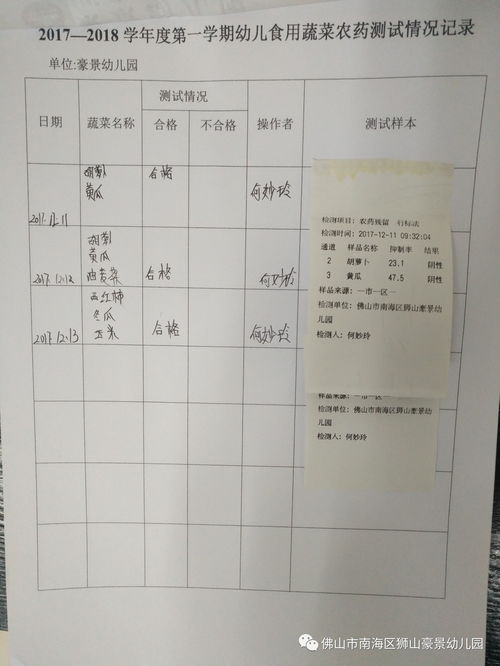 2017—2018 学年度第一学期幼儿食用蔬菜农药测试情况记录
单位:豪景幼儿园
日期 蔬菜名称 测试情况 操作者 测试样本
合格 不合格
胡萝卜 合格 何妙玲
黄瓜
2017.12.11
胡萝卜
黄瓜
2017.12.12 油麦菜 合格 何妙玲
西红柿
冬瓜
2017.12.13 玉米 合格 何妙玲
检测项目: 农药残留 行标法
检测时间: 2017-12-11 09:32:04
通道 样品名称 抑制率 结果
2 胡萝卜 23.1 阴性
3 黄瓜 47.5 阴性
样品来源: 一市一区一
检测单位: 佛山市南海区狮山豪景幼
儿园
检测人: 何妙玲
样品来源: 一市一区一
检测单位: 佛山市南海区狮山豪景幼
儿园
检测人: 何妙玲
佛山市南海区狮山豪景幼儿园